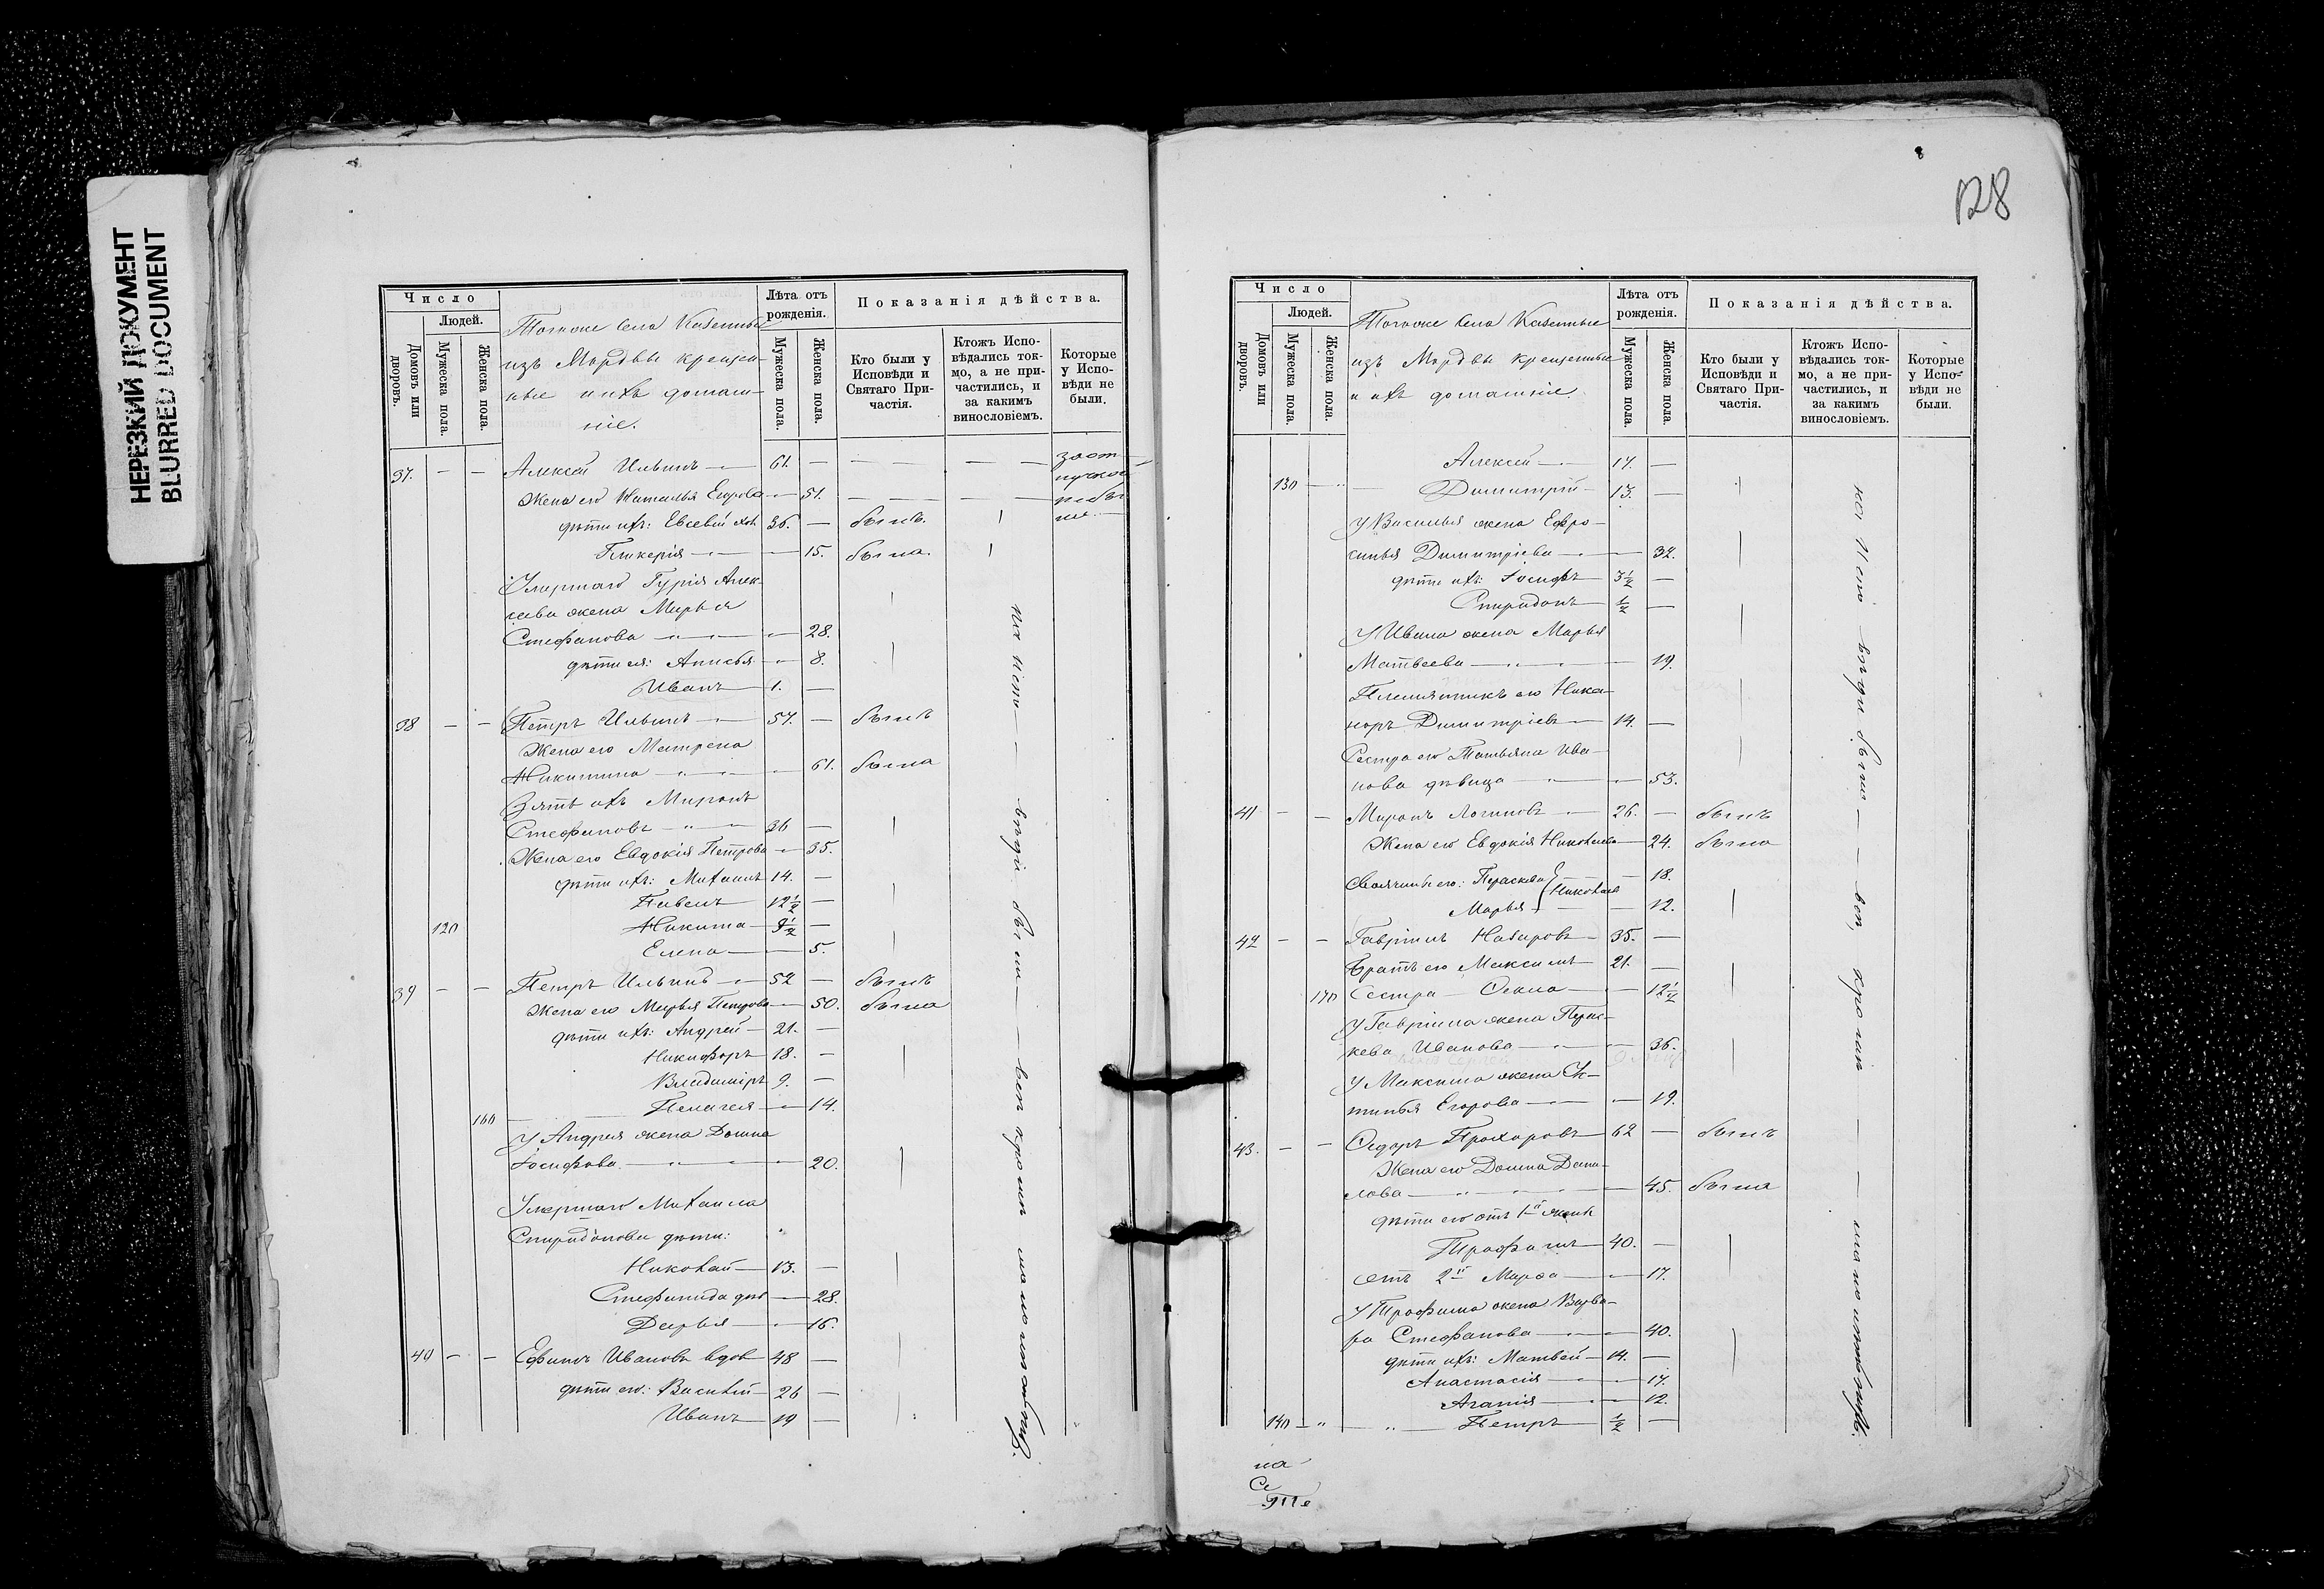 НЕРЕЗКИЙ ДОКУМЕНТ
BLURRED DOCUMENT
Число
Людей.
Домовъ или дворовъ.
Мужеска пола.
Женска пола.
Тогоже села Казенные
изъ Мордвы крещен-
ные и ихъ домаш-
ніе.
Лѣта отъ рожденія.
Мужеска пола.
Женска пола.
Показанія дѣйства.
Кто были у Исповѣди и Святаго Причастія.
Ктожъ Исповѣдались токмо, а не причастились, и за какимъ винословіемъ.
Которые у Исповѣди не были.
37. — — Алексѣй Ильинъ 61. —
Жена его Наталья Егорова 51.
дѣти ихъ: Евсевій 36. — былъ
Гликерія 15. была.
Умершаго Гурія Алек-
сѣева жена Марья
Стефанова 28.
дѣти ея: Анисья 8.
Иванъ 1. —
38 — — Петръ Ильинъ 57. — былъ
Жена его Матрена
Никитина 61. была
Зять ихъ Миронъ
Стефановъ 36 —
Жена его Евдокія Петрова 35.
дѣти ихъ: Михаилъ 14. —
Павелъ 12½ —
120 Никита 9½ —
Елена 5.
39 — — Петръ Ильинъ 52 — былъ
Жена его Марья Петрова 50. была
дѣти ихъ: Андрей 21. —
Никифоръ 18. —
Владиміръ 9. —
160 Пелагея 14.
У Андрея жена Домна
Іосифова 20.
Умершаго Михаила
Спиридонова дѣти:
Николай 13. —
Стефанида 28.
Дарья 16.
40 — — Ефимъ Ивановъ вдов 48 —
дѣти его: Василій 26 —
Иванъ 19 —
128
Число
Людей.
Домовъ или дворовъ.
Мужеска пола.
Женска пола.
Тогоже села Казенные
изъ Мордвы крещенные
и ихъ домашніе.
Лѣта отъ рожденія.
Мужеска пола.
Женска пола.
Показанія дѣйства.
Кто были у Исповѣди и Святаго Причастія.
Ктожъ Исповѣдались токмо, а не причастились, и за какимъ винословіемъ.
Которые у Исповѣди не были.
Алексѣй 17. —
130 Димитрій 13. —
У Василья жена Ефро-
синья Димитріева 32.
дѣти ихъ: Іосифъ 3½ —
Спиридонъ ½ —
У Ивана жена Марья
Матвѣева 19.
Племянникъ его Ника-
норъ Димитріевъ 14. —
Сестра его Татьяна Ива-
нова дѣвица 53.
41 — — Миронъ Логиновъ 26. — былъ
Жена его Евдокія Николаева 24. была
Своячины его: Параскева 18.
Марья 12.
42 — — Гавріилъ Назаровъ 35. —
Братъ его Максимъ 21. —
170 Сестра Ѳекла 12½
У Гавріила жена Парас-
кева Иванова 36.
У Максима жена Ус-
тинья Егорова 19.
43. — — Ѳедоръ Прохоровъ 62 — былъ
Жена его Домна Дани-
лова 45. была
дѣти его отъ 1й жены
Трофимъ 40. —
отъ 2й Марѳа 17.
У Трофима жена Варва-
ра Стефанова 40.
дѣти ихъ: Матвѣй 14. —
Анастасія 17.
Агапія 12.
140 Петръ ½ —
на
Се